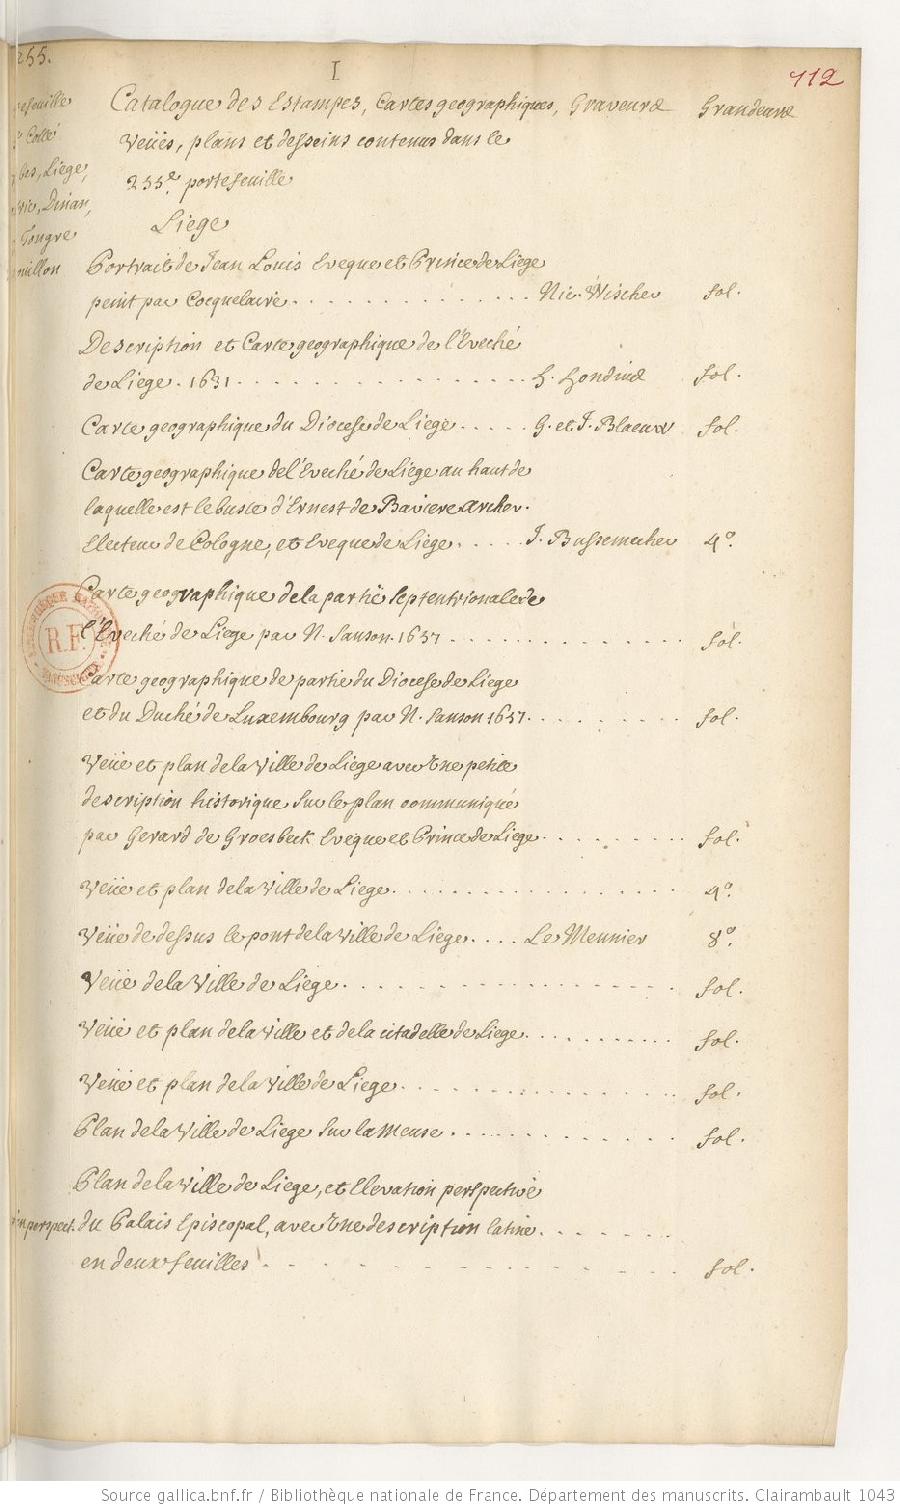 255.
I
112
Catalogue des Estampes, Cartes geographiques, Graveurs Grandeurs
Veües, plans et desseins contenus dans le
255e. portefeuille
Liege
Portrait de Jean Louis Eveque et Prince de Liege
peint par Cocquelaire . . . Nic. Wischer fol.
Description et Carte geographique de l'Eveché
de Liege. 1631 . . . H. Hondius fol.
Carte geographique du Diocese de Liege . . . G. et J. Blaeux fol.
Carte geographique de l'Eveché de Liege au haut de
laquelle est le buste d'Ernest de Baviere Archev.
Electeur de Cologne, et Eveque de Liege . . . J. Bussemecher 4o.
Carte geographique de la partie Septentrionale de
l'Eveché de Liege par N. Sanson. 1657 . . . fol.
Carte geographique de partie du Diocese de Liege
et du Duché de Luxembourg par N. Sanson 1657 . . . fol.
Veüe et plan de la Ville de Liege avec Une petite
description historique Sur le plan communiqué
par Gerard de Groesbeck Eveque et Prince de Liege . . . fol.
Veüe et plan de la Ville de Liege . . . 4o.
Veüe de dessus le pont de la Ville de Liege . . . Le Meunier 8o.
Veüe de la Ville de Liege . . . fol.
Veüe et plan de la Ville et de la citadelle de Liege . . . fol.
Veüe et plan de la Ville de Liege . . . fol.
Plan de la Ville de Liege Sur la Meuse . . . fol.
Plan de la Ville de Liege, et Elevation perspective
du Palais Episcopal, avec Une description latine . . .
en deux feuilles . . . fol.
R.F.
Source gallica.bnf.fr / Bibliothèque nationale de France. Département des manuscrits. Clairambault 1043